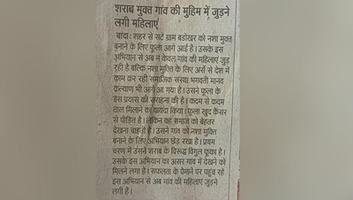 शराब मुक्त गांव की मुहिम में जुड़ने
लगी महिलाएं
बांदा: शहर से सटे ग्राम बड़ोखर को नशा मुक्त
बनाने के लिए फूला आगे आई है। उसके इस
अभियान से अब न केवल गांव की महिलाएं जुड़
रही है बल्कि नशा मुक्ति के लिए अर्से से देश में
काम कर रही सामाजिक संस्था भगवती मानव
कल्याण भी आगे आ गया है। उसने फूला के
इस प्रयास की सराहना की है। कदम से कदम
ताल मिलाने का वायदा किया। फूला खुद कैंसर
से पीड़ित है। लेकिन वह समाज को बेहतर
देखना चाहती है। उसने गांव को नशा मुक्त
बनाने के लिए अभियान छेड़ रखा है। प्रथम
चरण में उसने शराब के विरुद्ध बिगुल फूंका है।
उसके इस अभियान का असर गांव में देखने को
मिलने लगा है। सफलता के पैमाने पर पहुंच रहे
इस अभियान से अब गांव की महिलाएं जुड़ने
लगी हैं।